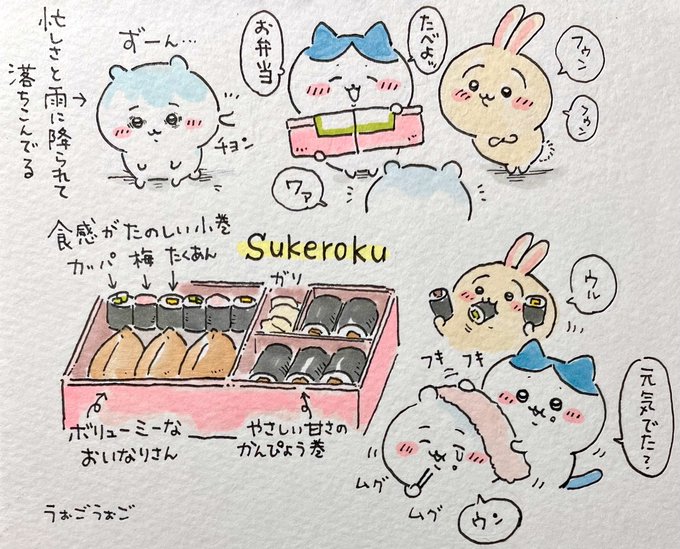 忙しさと雨に降られて
落ちこんでる
ずーん…
チョン
お弁当
たべよッ
フゥン
フゥン
ワァ
食感がたのしい小巻
カッパ
梅
たくあん
Sukeroku
ガリ
ボリューミーな
おいなりさん
やさしい甘さの
かんぴょう巻
ウル
フキ
フキ
元気でた?
ムグ
ムグ
ウン
うぉごうぉご